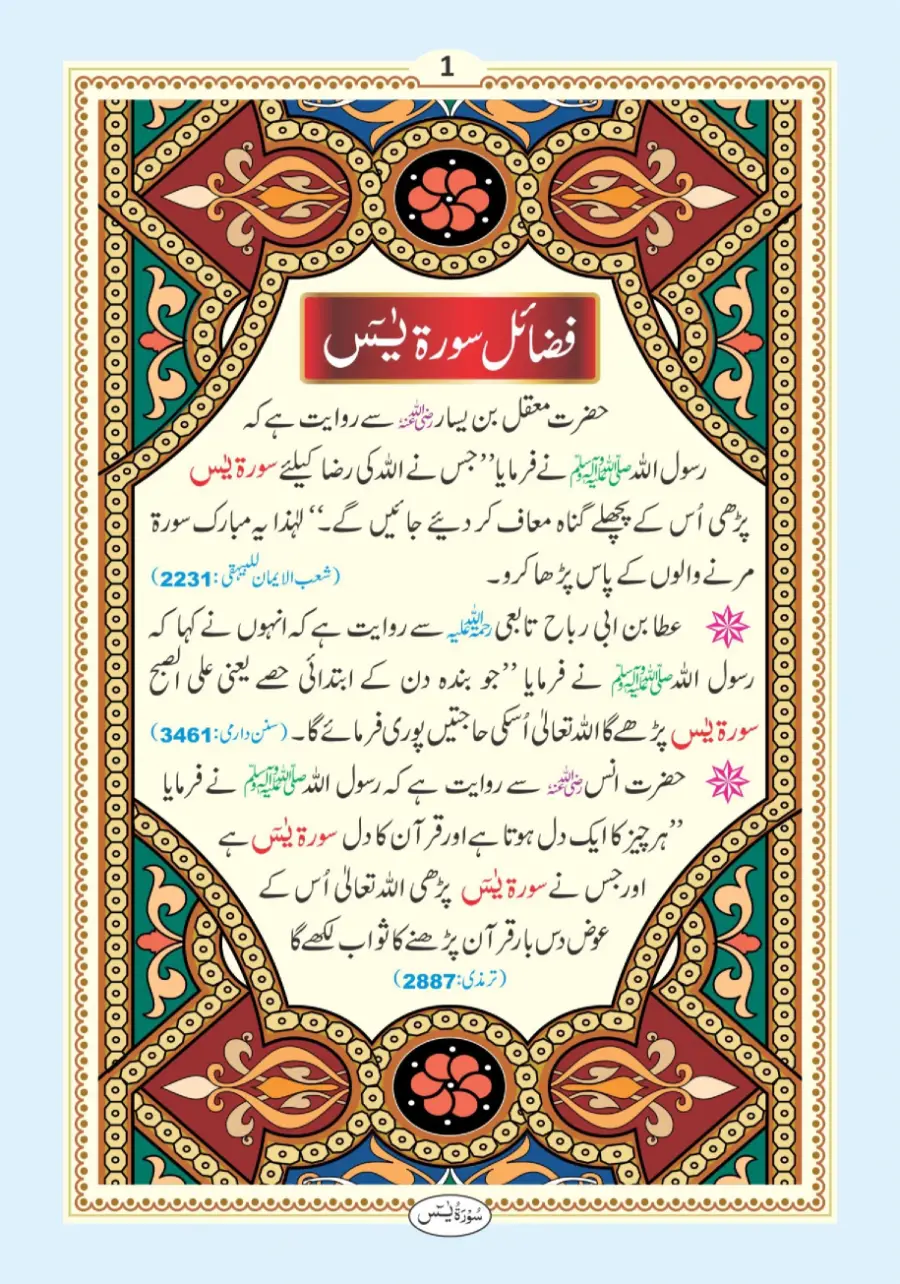 1
فضائل سورۃ یٰسٓ
حضرت معقل بن یسار رضی اللہ عنہ سے روایت ہے کہ
رسول اللہ ﷺ نے فرمایا ’’جس نے اللہ کی رضا کیلئے سورۃ یٰس
پڑھی اُس کے پچھلے گناہ معاف کر دئیے جائیں گے۔‘‘ لہٰذا یہ مبارک سورۃ
مرنے والوں کے پاس پڑھا کرو۔ (شعب الایمان للبیہقی:2231)
عطا بن ابی رباح تابعی رحمۃ اللہ علیہ سے روایت ہے کہ انہوں نے کہا کہ
رسول اللہ ﷺ نے فرمایا ’’جو بندہ دن کے ابتدائی حصے یعنی علی الصبح
سورۃ یٰس پڑھے گا اللہ تعالیٰ اُسکی حاجتیں پوری فرمائے گا۔ (سنن دارمی:3461)
حضرت انس رضی اللہ عنہ سے روایت ہے کہ رسول اللہ ﷺ نے فرمایا
’’ہر چیز کا ایک دل ہوتا ہے اور قرآن کا دل سورۃ یٰسٓ ہے
اور جس نے سورۃ یٰسٓ پڑھی اللہ تعالیٰ اُس کے
عوض دس بار قرآن پڑھنے کا ثواب لکھے گا
(ترمذی:2887)
سُوْرَۃُ یٰسٓ